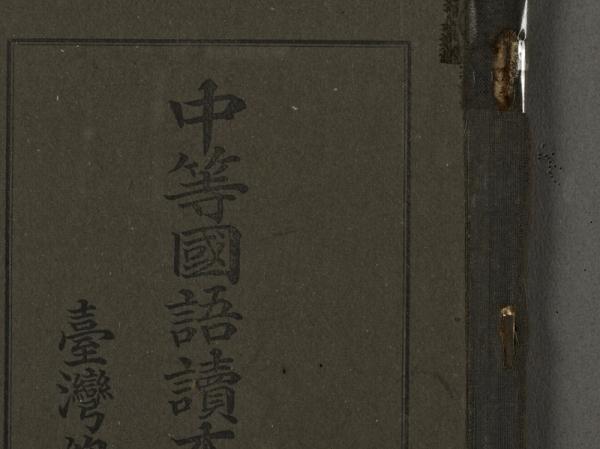 中等國語讀本
臺灣